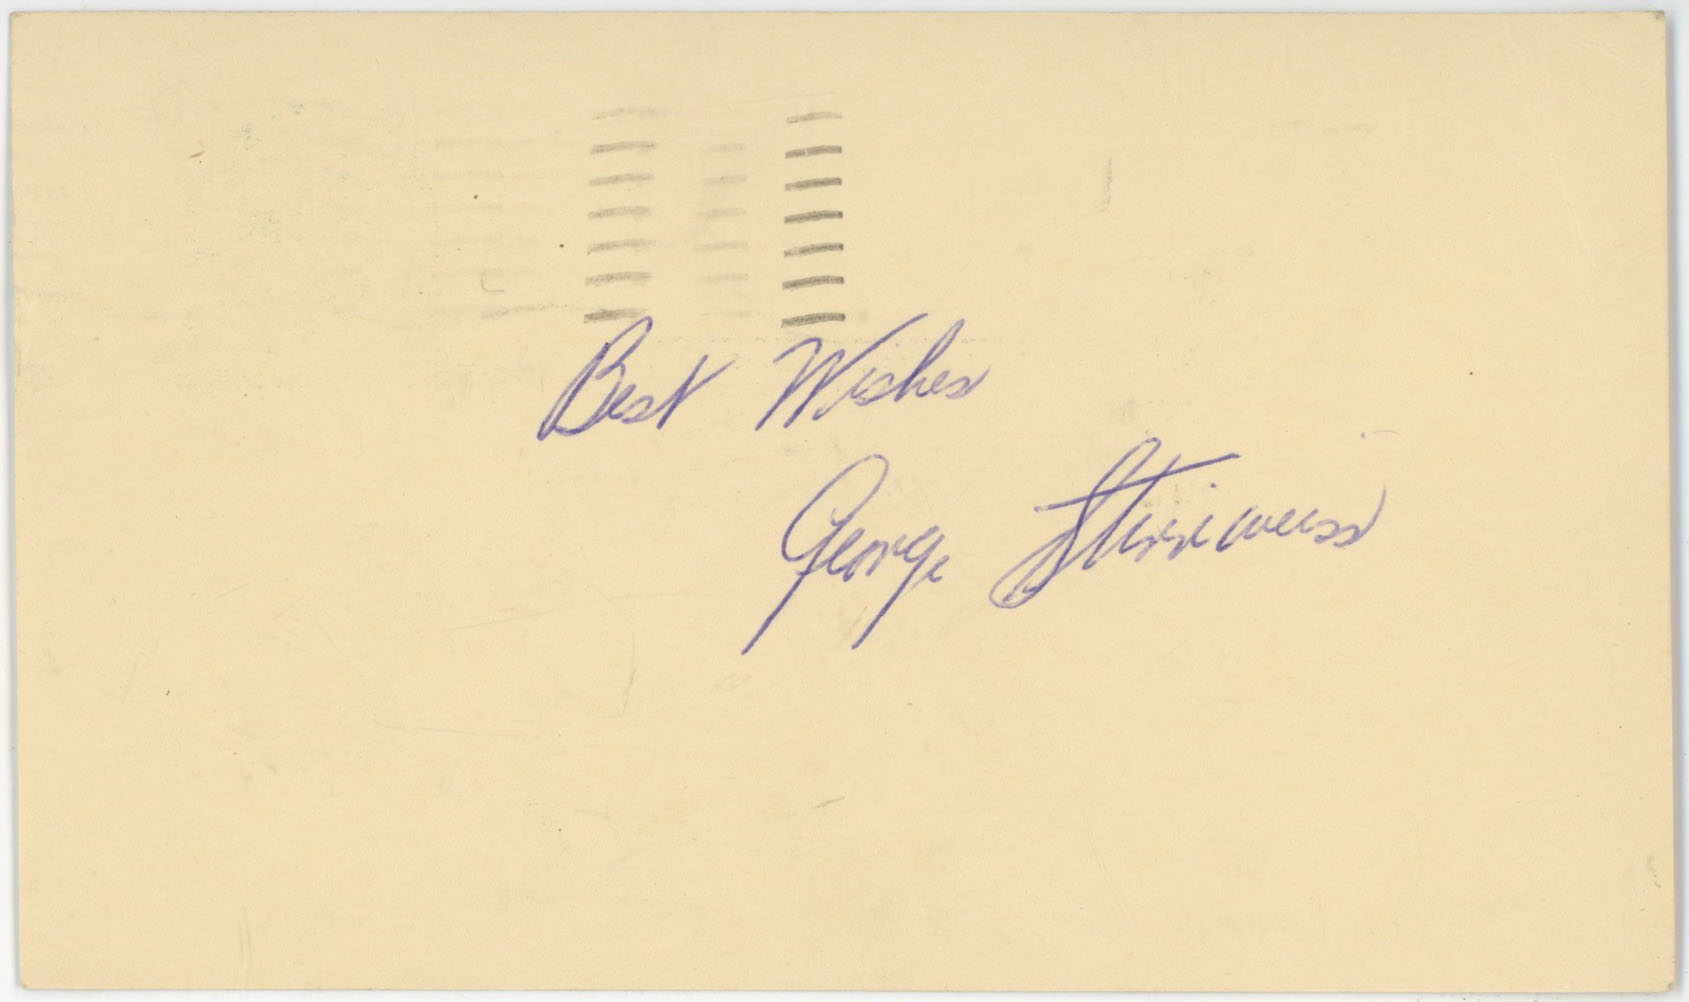 Best Wishes
George Stirnweiss